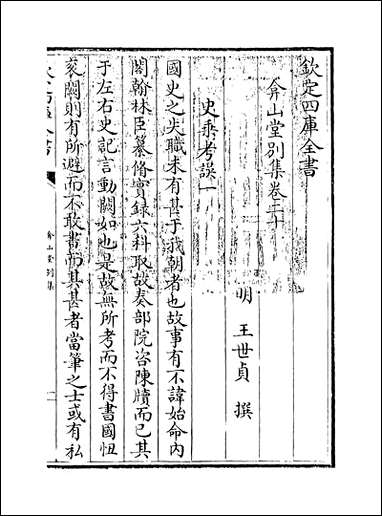 欽定四庫全書
弇山堂別集卷二十
明 王世貞 撰
史乘考誤一
國史之失職未有甚于我朝者也故事有不諱始命內
閣翰林臣纂修實録六科取故奏部院咨陳牘而已其
于左右史記言動闕如也是故無所考而不得書國忸
衮闕則有所避而不敢書而其甚者當筆之士或有私
弇山堂別集